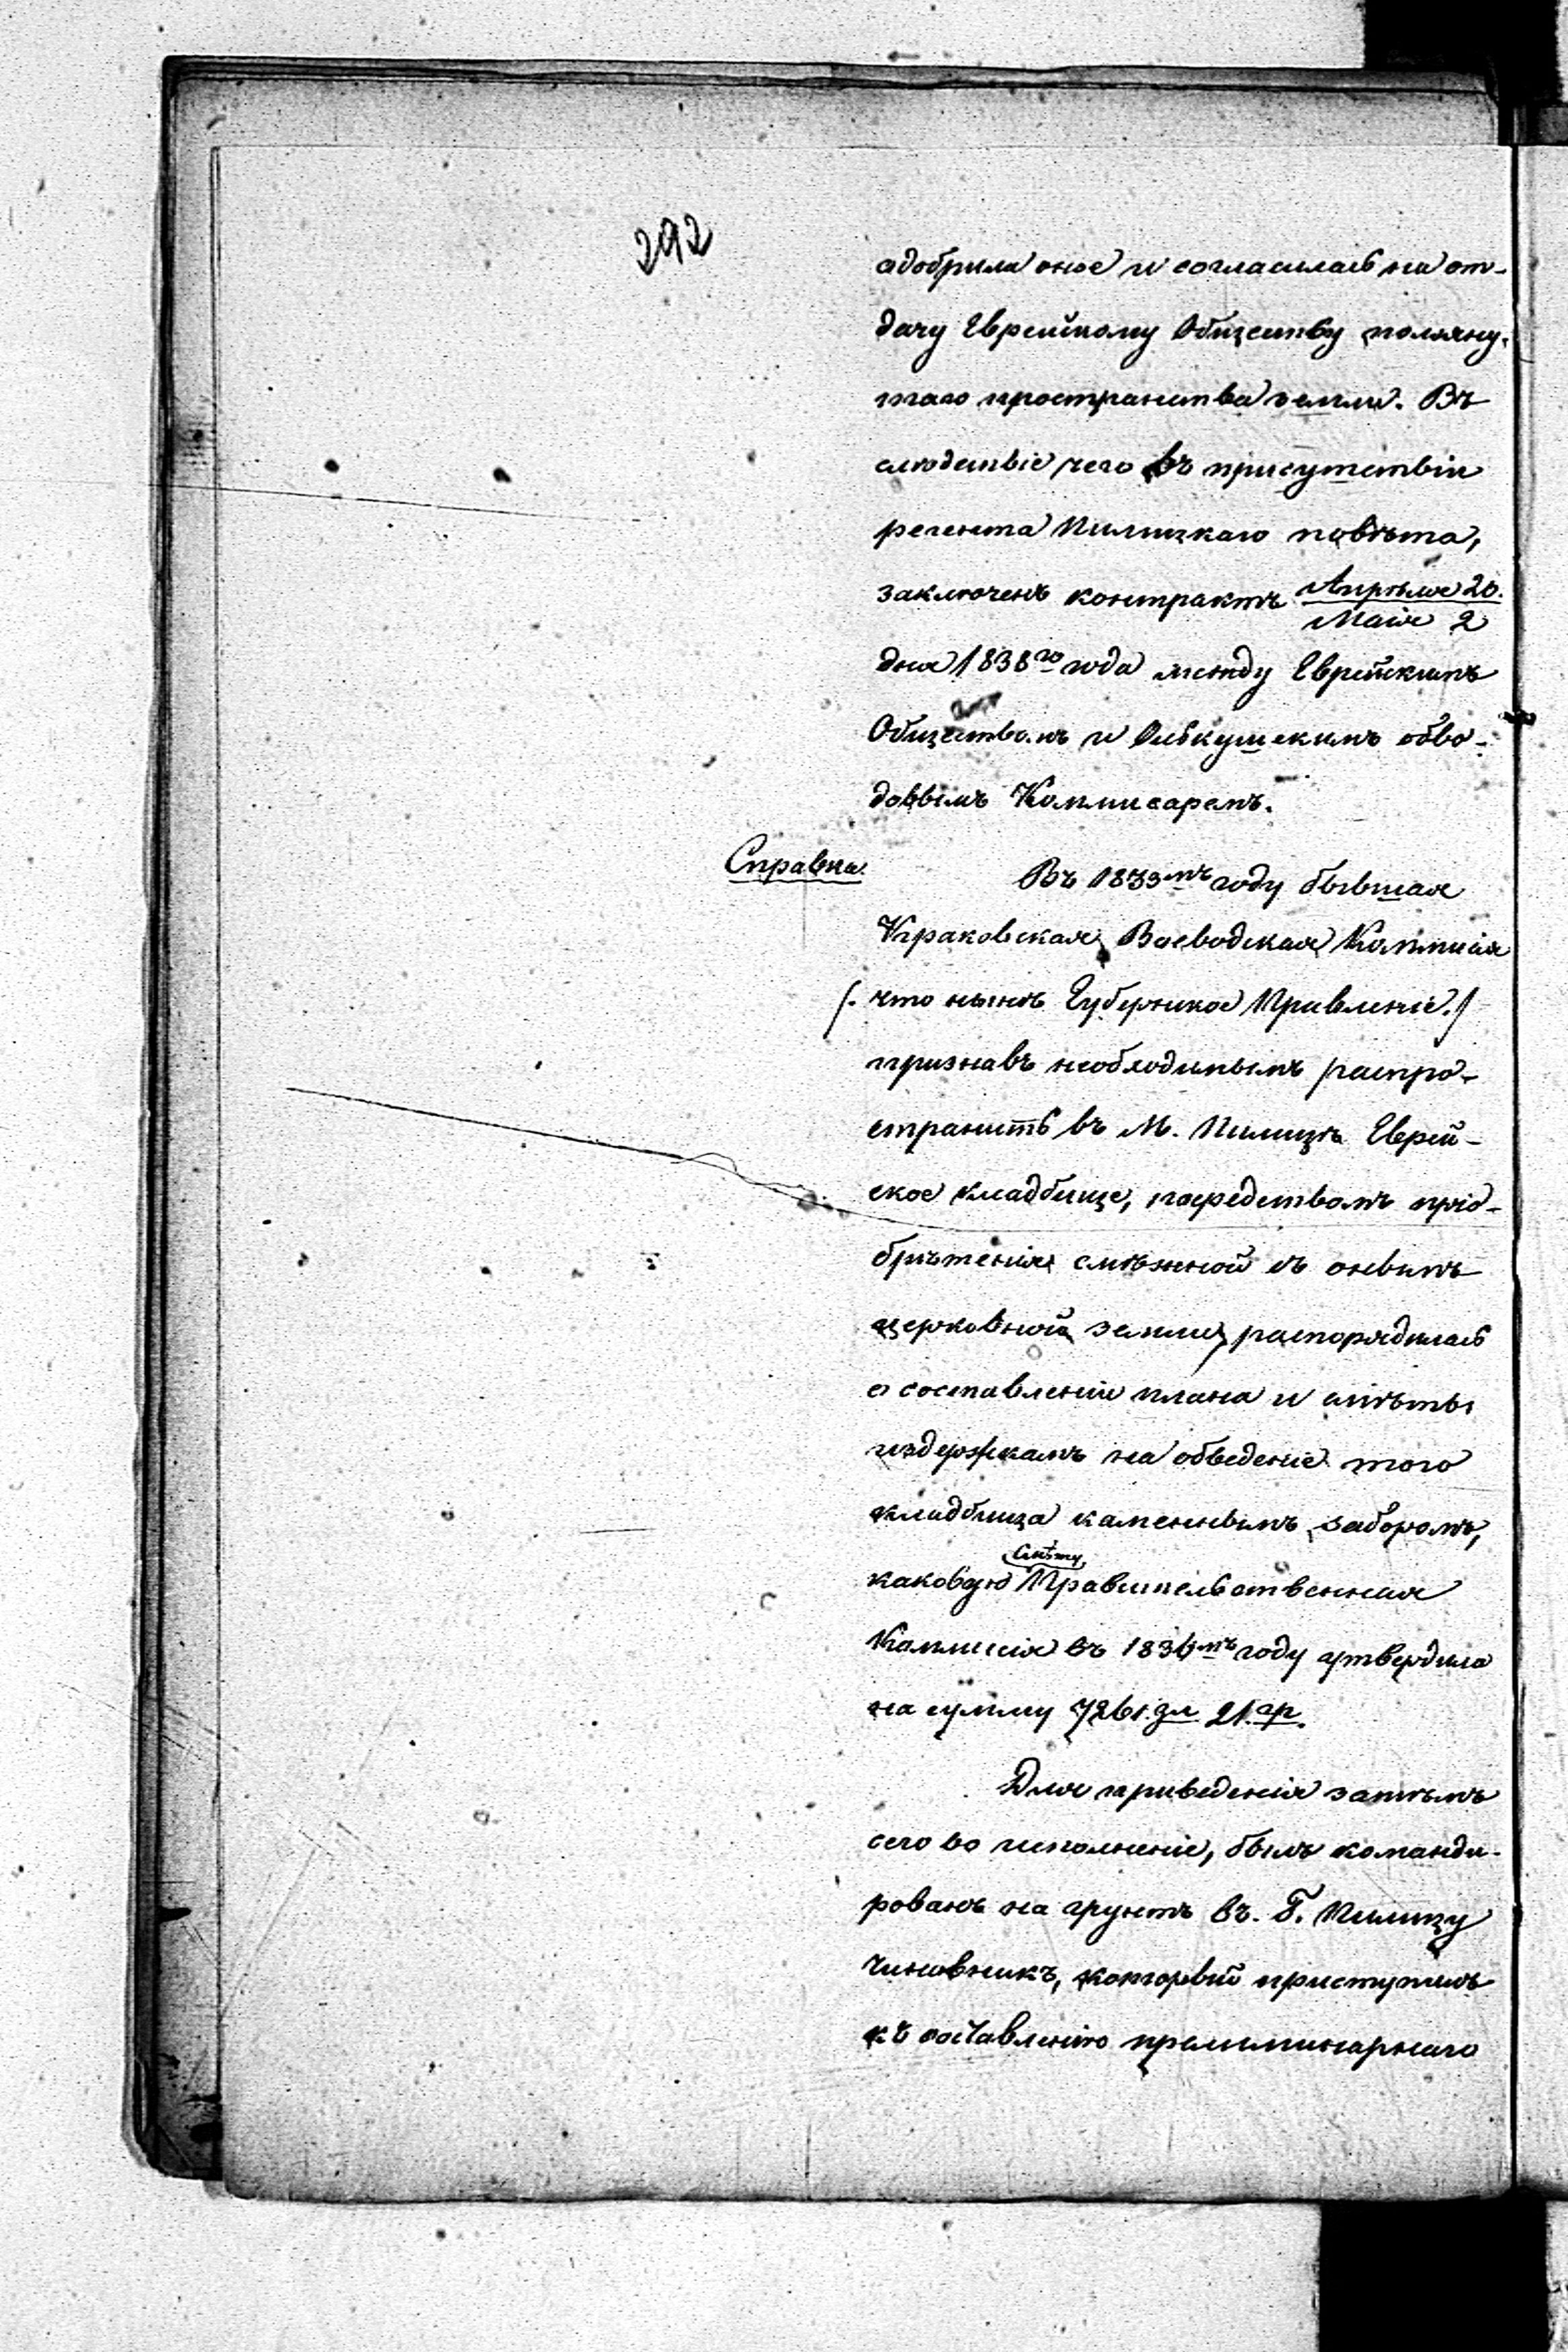 292
одобрила оное и согласилась на от-
дачу Еврейскому Обществу помяну-
таго пространства земли. Въ
слѣдствіе чего въ присутствіи
регента Пилицкаго повѣта,
заключенъ контрактъ Апрѣля 20.
Маія 2
дня 1838го года между Еврейскимъ
Обществомъ и Олькушскимъ обво-
довымъ Коммисаремъ.
Справка.
Въ 1833мъ году бывшая
Краковская Воеводская Коммисія
/. что нынѣ Губернское Правленіе ./
признавъ необходимымъ распро-
странить въ М. Пилицѣ Еврей-
ское кладбище, посредствомъ прiо-
брѣтенія смѣжной съ онымъ
церковной земли, распорядилась
о составленіи плана и смѣты
издержкамъ на обведеніе того
кладбища каменнымъ заборомъ,
смѣту
каковую Правительственная
Коммисія въ 1836мъ году утвердила
на сумму 7261 зл. 21. гр.
Для приведенія затѣмъ
сего во исполненіе, былъ команди-
рованъ на грунтъ въ. Г. Пилицу
Чиновникъ, который приступилъ
къ составленію прелиминарнаго